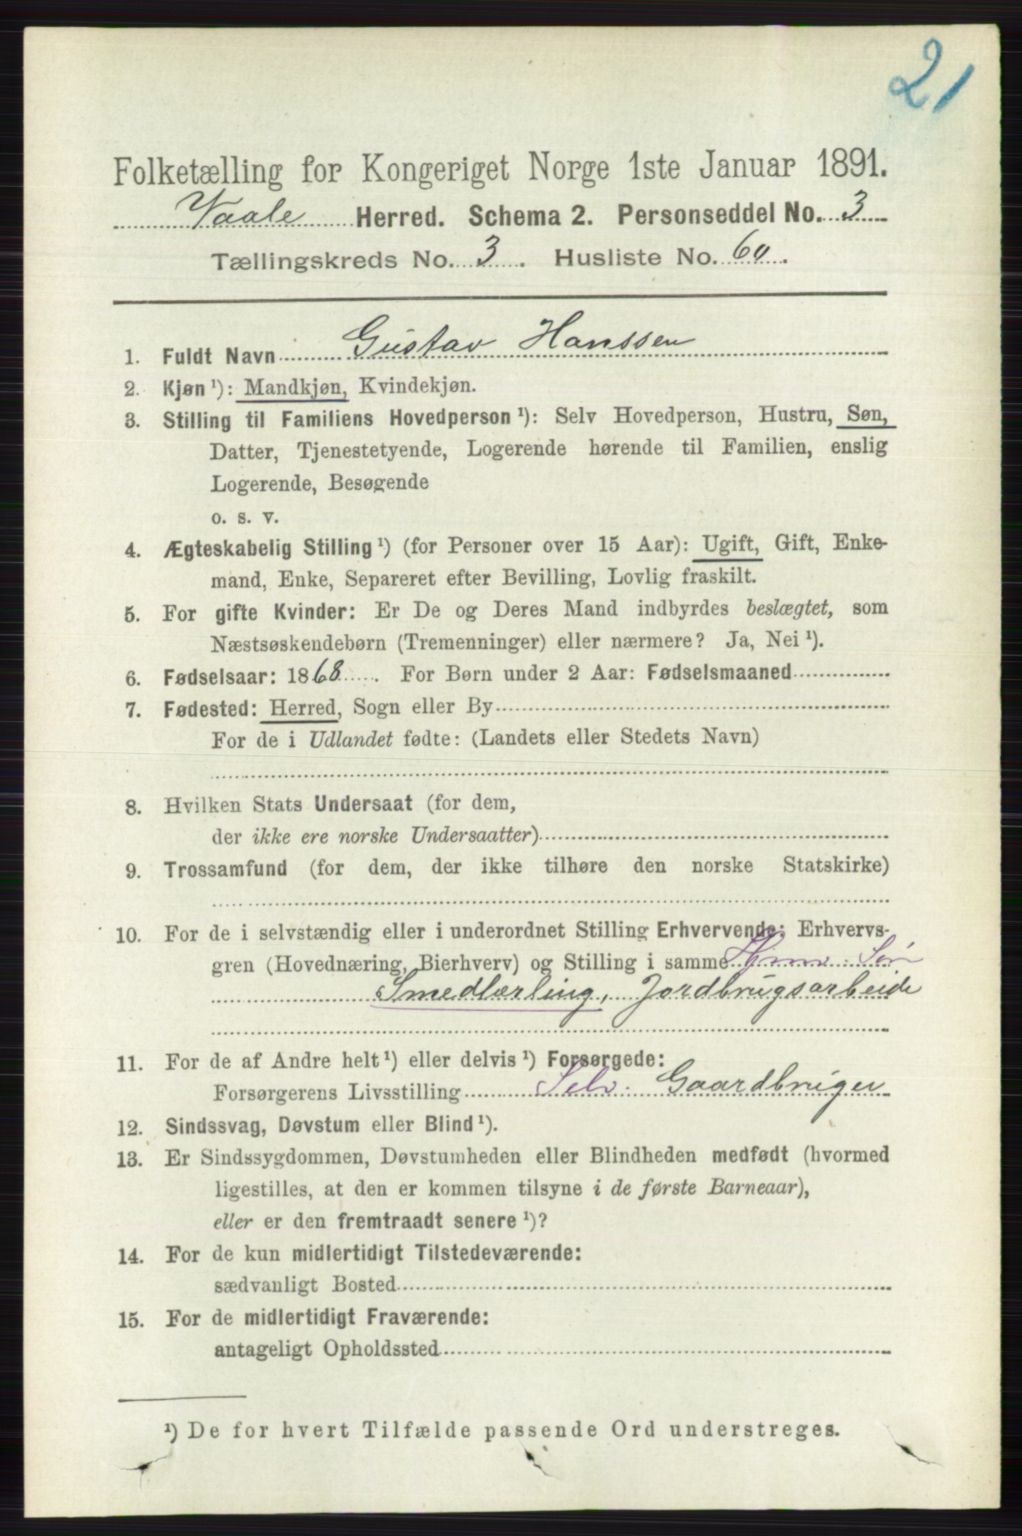 21
Folketælling for Kongeriget Norge 1ste Januar 1891.
Vaale Herred. Schema 2. Personseddel No. 3
Tællingskreds No. 3. Husliste No. 60.
1. Fuldt Navn Gustav Hanssen
2. Kjøn ¹): Mandkjøn, Kvindekjøn.
3. Stilling til Familiens Hovedperson ¹): Selv Hovedperson, Hustru, Søn,
Datter, Tjenestetyende, Logerende hørende til Familien, enslig
Logerende, Besøgende
o. s. v.
4. Ægteskabelig Stilling ¹) (for Personer over 15 Aar): Ugift, Gift, Enke-
mand, Enke, Separeret efter Bevilling, Lovlig fraskilt.
5. For gifte Kvinder: Er De og Deres Mand indbyrdes beslægtet, som
Næstsøskendebørn (Tremenninger) eller nærmere? Ja, Nei ¹).
6. Fødselsaar: 1868. For Børn under 2 Aar: Fødselsmaaned
7. Fødested: Herred, Sogn eller By
For de i Udlandet fødte: (Landets eller Stedets Navn)
8. Hvilken Stats Undersaat (for dem,
der ikke ere norske Undersaatter)
9. Trossamfund (for dem, der ikke tilhøre den norske Statskirke)
10. For de i selvstændig eller i underordnet Stilling Erhvervende: Erhvervs-
gren (Hovednæring, Bierhverv) og Stilling i samme Søn
Smedlærling, Jordbrugsarbeide
11. For de af Andre helt ¹) eller delvis ¹) Forsørgede:
Forsørgerens Livsstilling Selv. Gaardbruger
12. Sindssvag, Døvstum eller Blind ¹).
13. Er Sindssygdommen, Døvstumheden eller Blindheden medfødt (hvormed
ligestilles, at den er kommen tilsyne i de første Barneaar),
eller er den fremtraadt senere ¹)?
14. For de kun midlertidigt Tilstedeværende:
sædvanligt Bosted
15. For de midlertidigt Fraværende:
antageligt Opholdssted
¹) De for hvert Tilfælde passende Ord understreges.